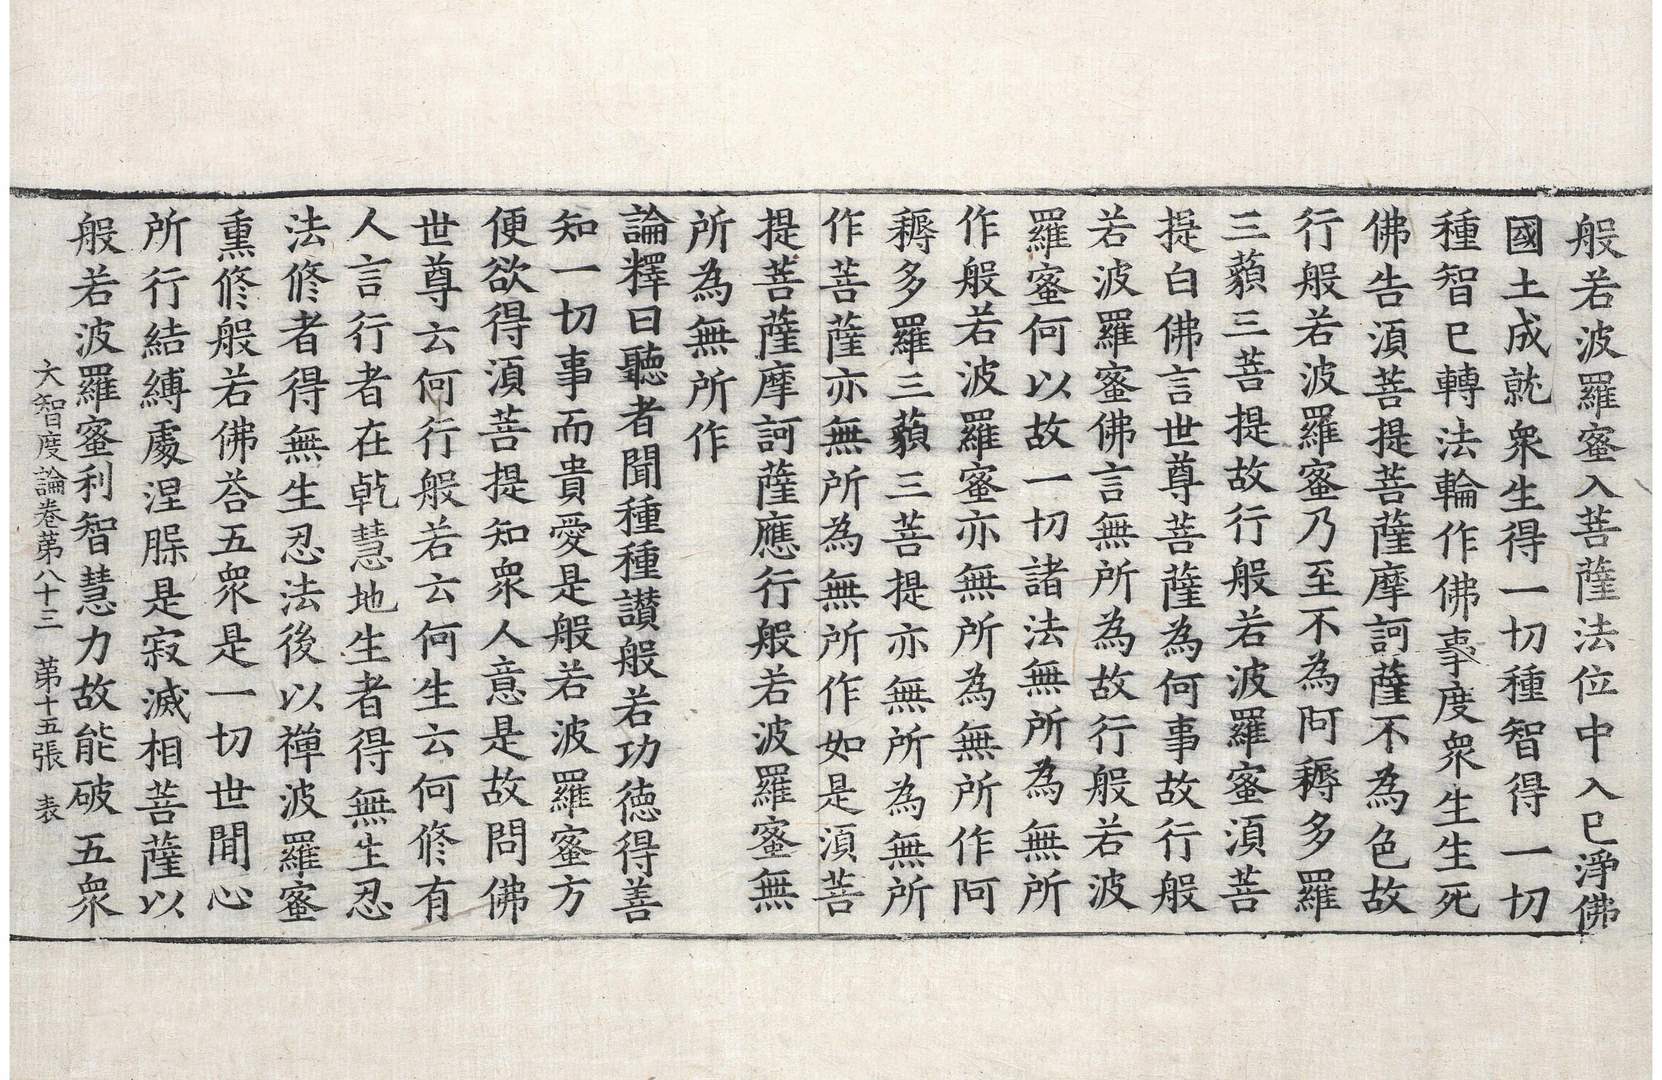 般若波羅蜜入菩薩法位中入已淨佛
國土成就衆生得一切種智得一切
種智已轉法輪作佛事度衆生生死
佛告須菩提菩薩摩訶薩不為色故
行般若波羅蜜乃至不為阿耨多羅
三藐三菩提故行般若波羅蜜須菩
提白佛言世尊菩薩為何事故行般
若波羅蜜佛言無所為故行般若波
羅蜜何以故一切諸法無所為無所
作般若波羅蜜亦無所為無所作阿
耨多羅三藐三菩提亦無所為無所
作菩薩亦無所為無所作如是須菩
提菩薩摩訶薩應行般若波羅蜜無
所為無所作
論釋曰聽者聞種種讃般若功德得善
知一切事而貴愛是般若波羅蜜方
便欲得須菩提知衆人意是故問佛
世尊云何行般若云何生云何修有
人言行者在乹慧地生者得無生忍
法修者得無生忍法後以禪波羅蜜
熏修般若佛荅五衆是一切世閒心
所行結縛處涅槃是寂滅相菩薩以
般若波羅蜜利智慧力故能破五衆
大智度論卷第八十三 第十五張 表